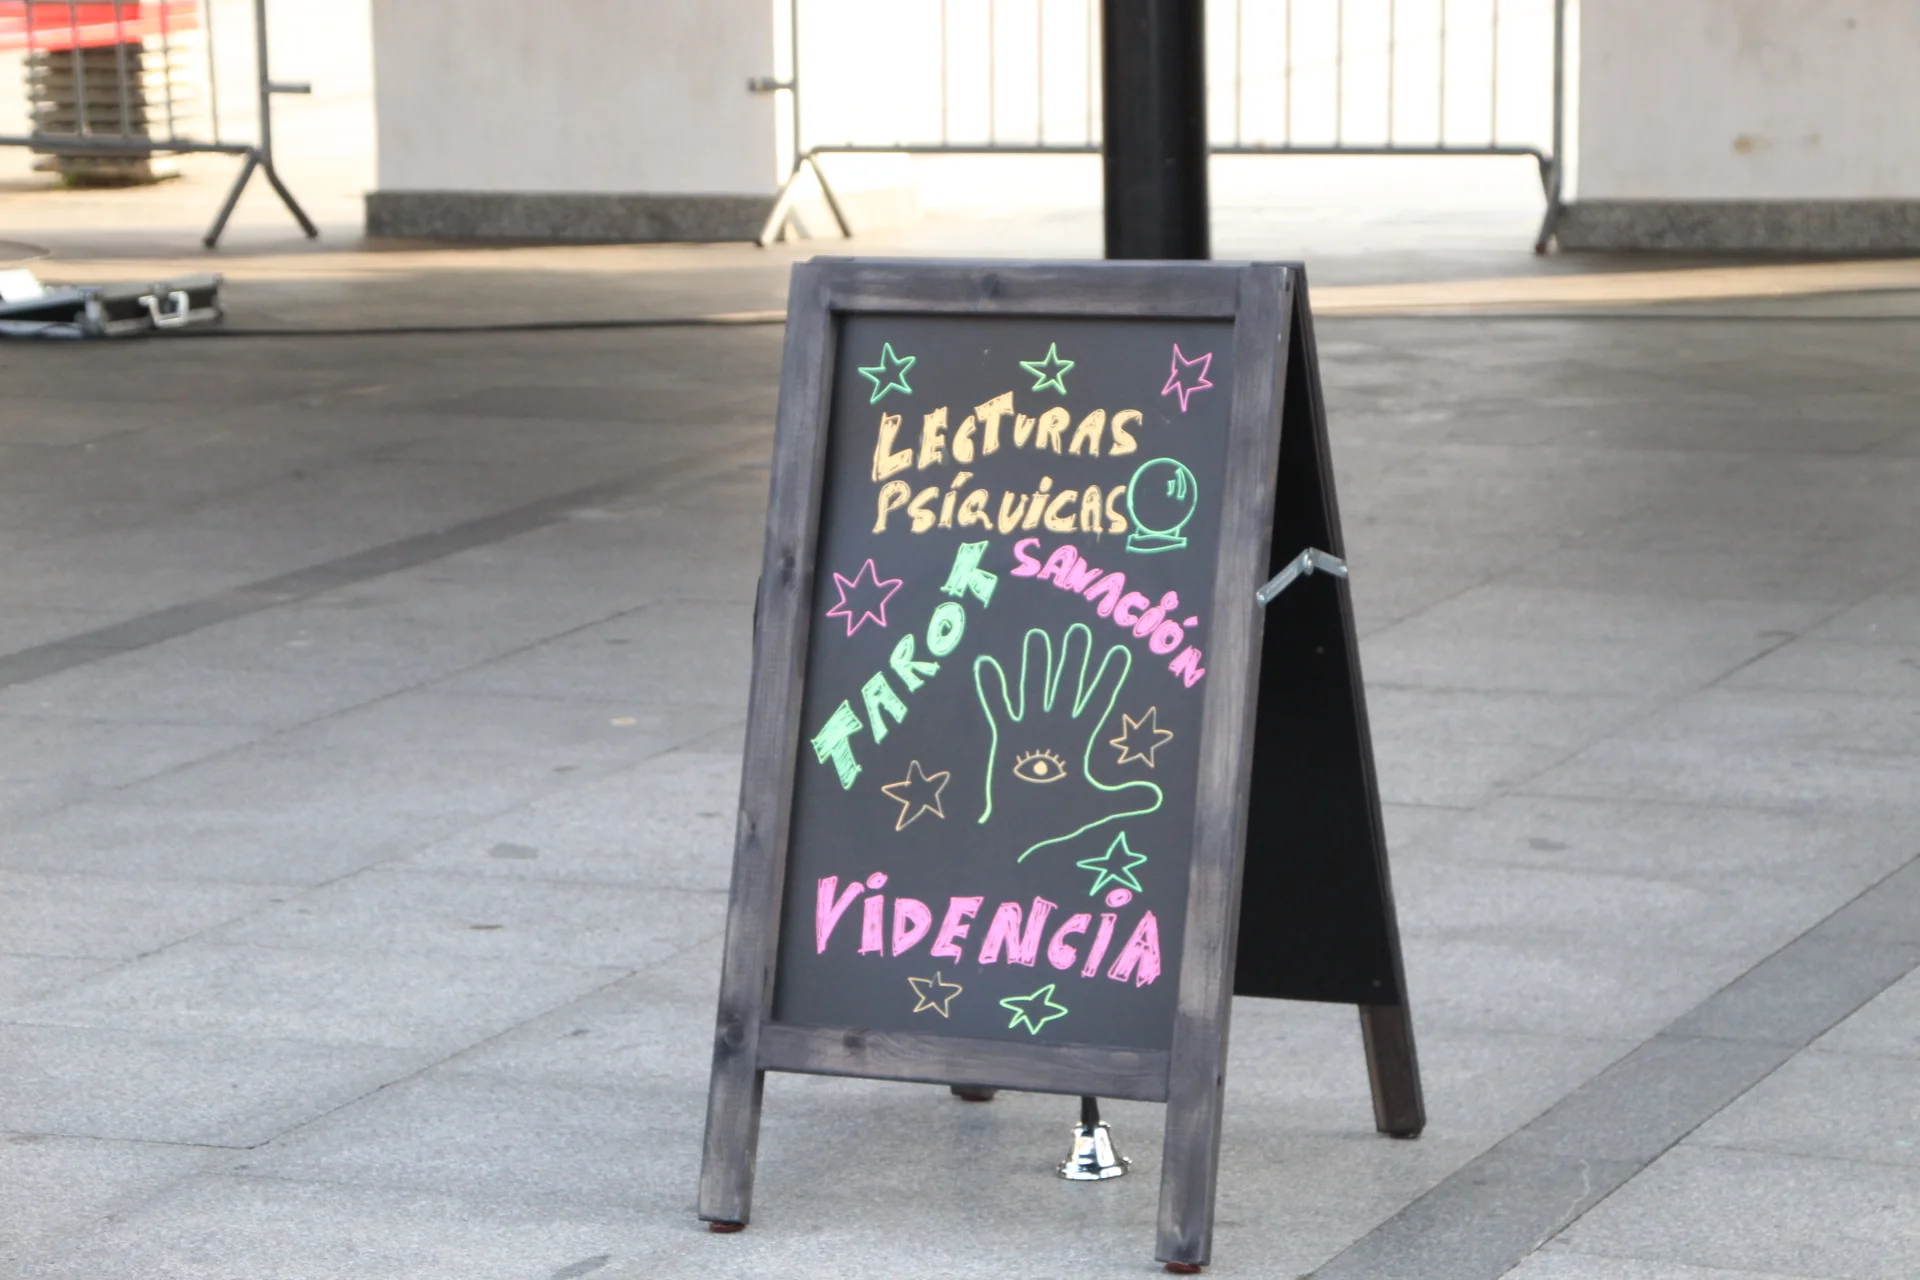 LECTURAS
PSÍQUICAS
TAROK
SANACIÓN
VIDENCIA